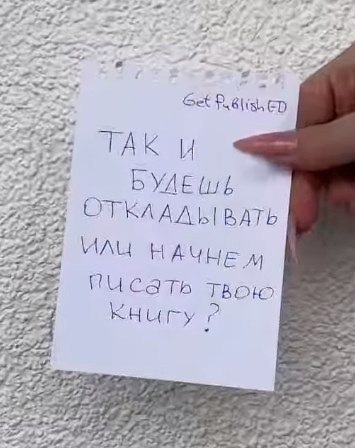 GetPublishED
ТАК И
БУДЕШЬ
ОТКЛАДЫВАТЬ
ИЛИ НАЧНЕМ
ПИСАТЬ ТВОЮ
КНИГУ?